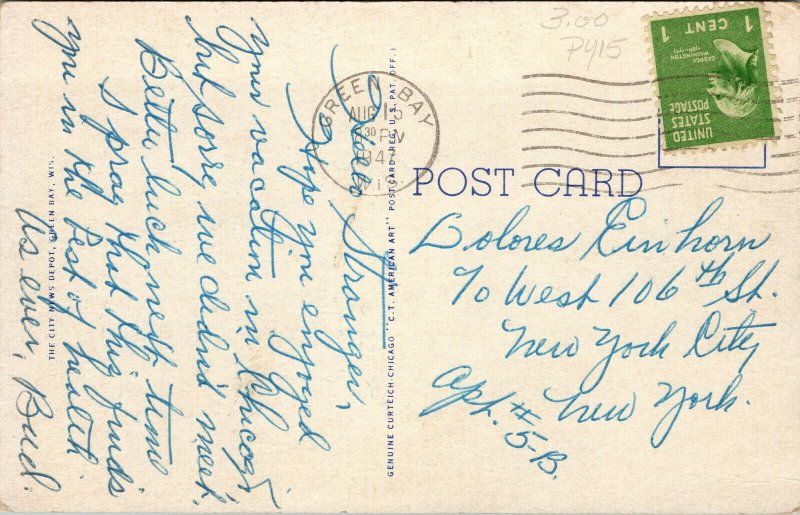 Hello Stranger,
Hope you enjoyed
your vacation in Chicago
but sorry we didn't meet.
Better luck next time
I pray that this finds
you in the best of health
As ever, Bud.
THE CITY NEWS DEPOT, GREEN BAY, WIS.
GENUINE CURTEICH-CHICAGO "C.T. AMERICAN ART" POST CARD (REG. U.S. PAT. OFF.)
3.00
PY15
GREEN BAY
AUG 15
30 PM
WIS
1 CENT 1
GEORGE
WASHINGTON
UNITED
STATES
POSTAGE
POST CARD
Dolores Einhorn
70 West 106th St.
New York City
New York.
Apt. #
5-B.